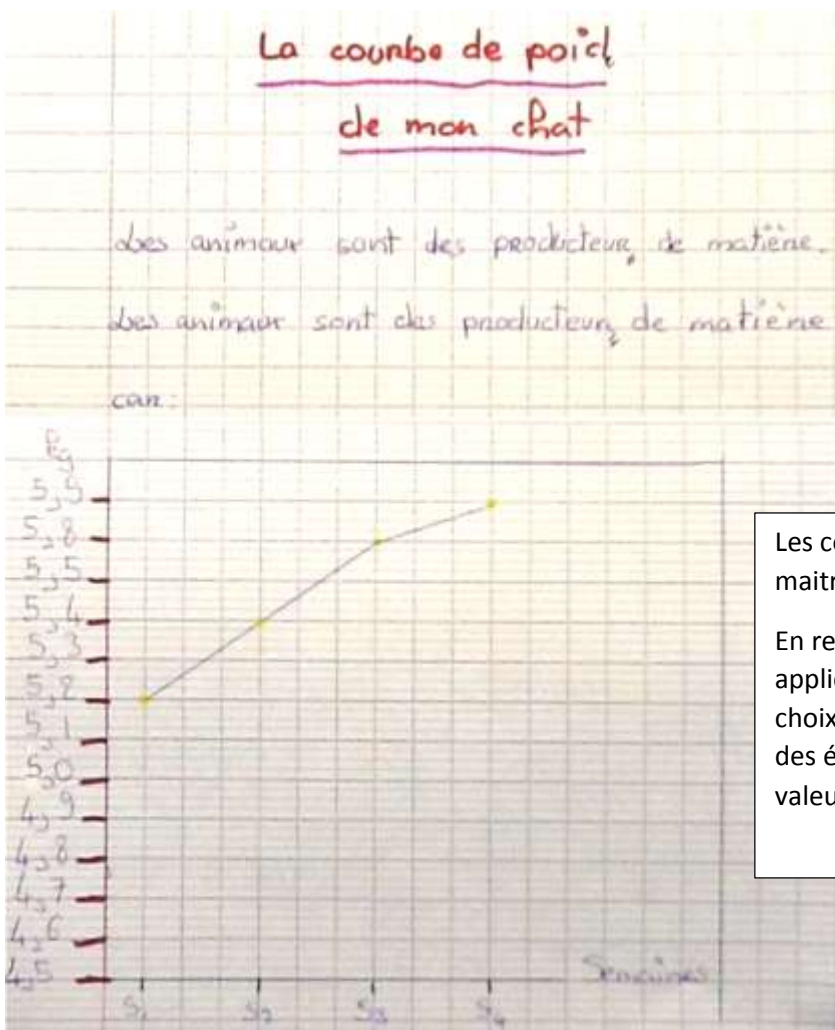 La courbe de poid
de mon chat
Les animaux sont des producteurs de matière.
Les animaux sont des producteurs de matière
car:
Kg
5,8
5,5
5,4
5,3
5,2
5,1
5,0
4,9
4,8
4,7
4,6
4,5
Semaines
S1 S2 S3 S4
Les co
maitr
En re
appli
choix
des é
valeu